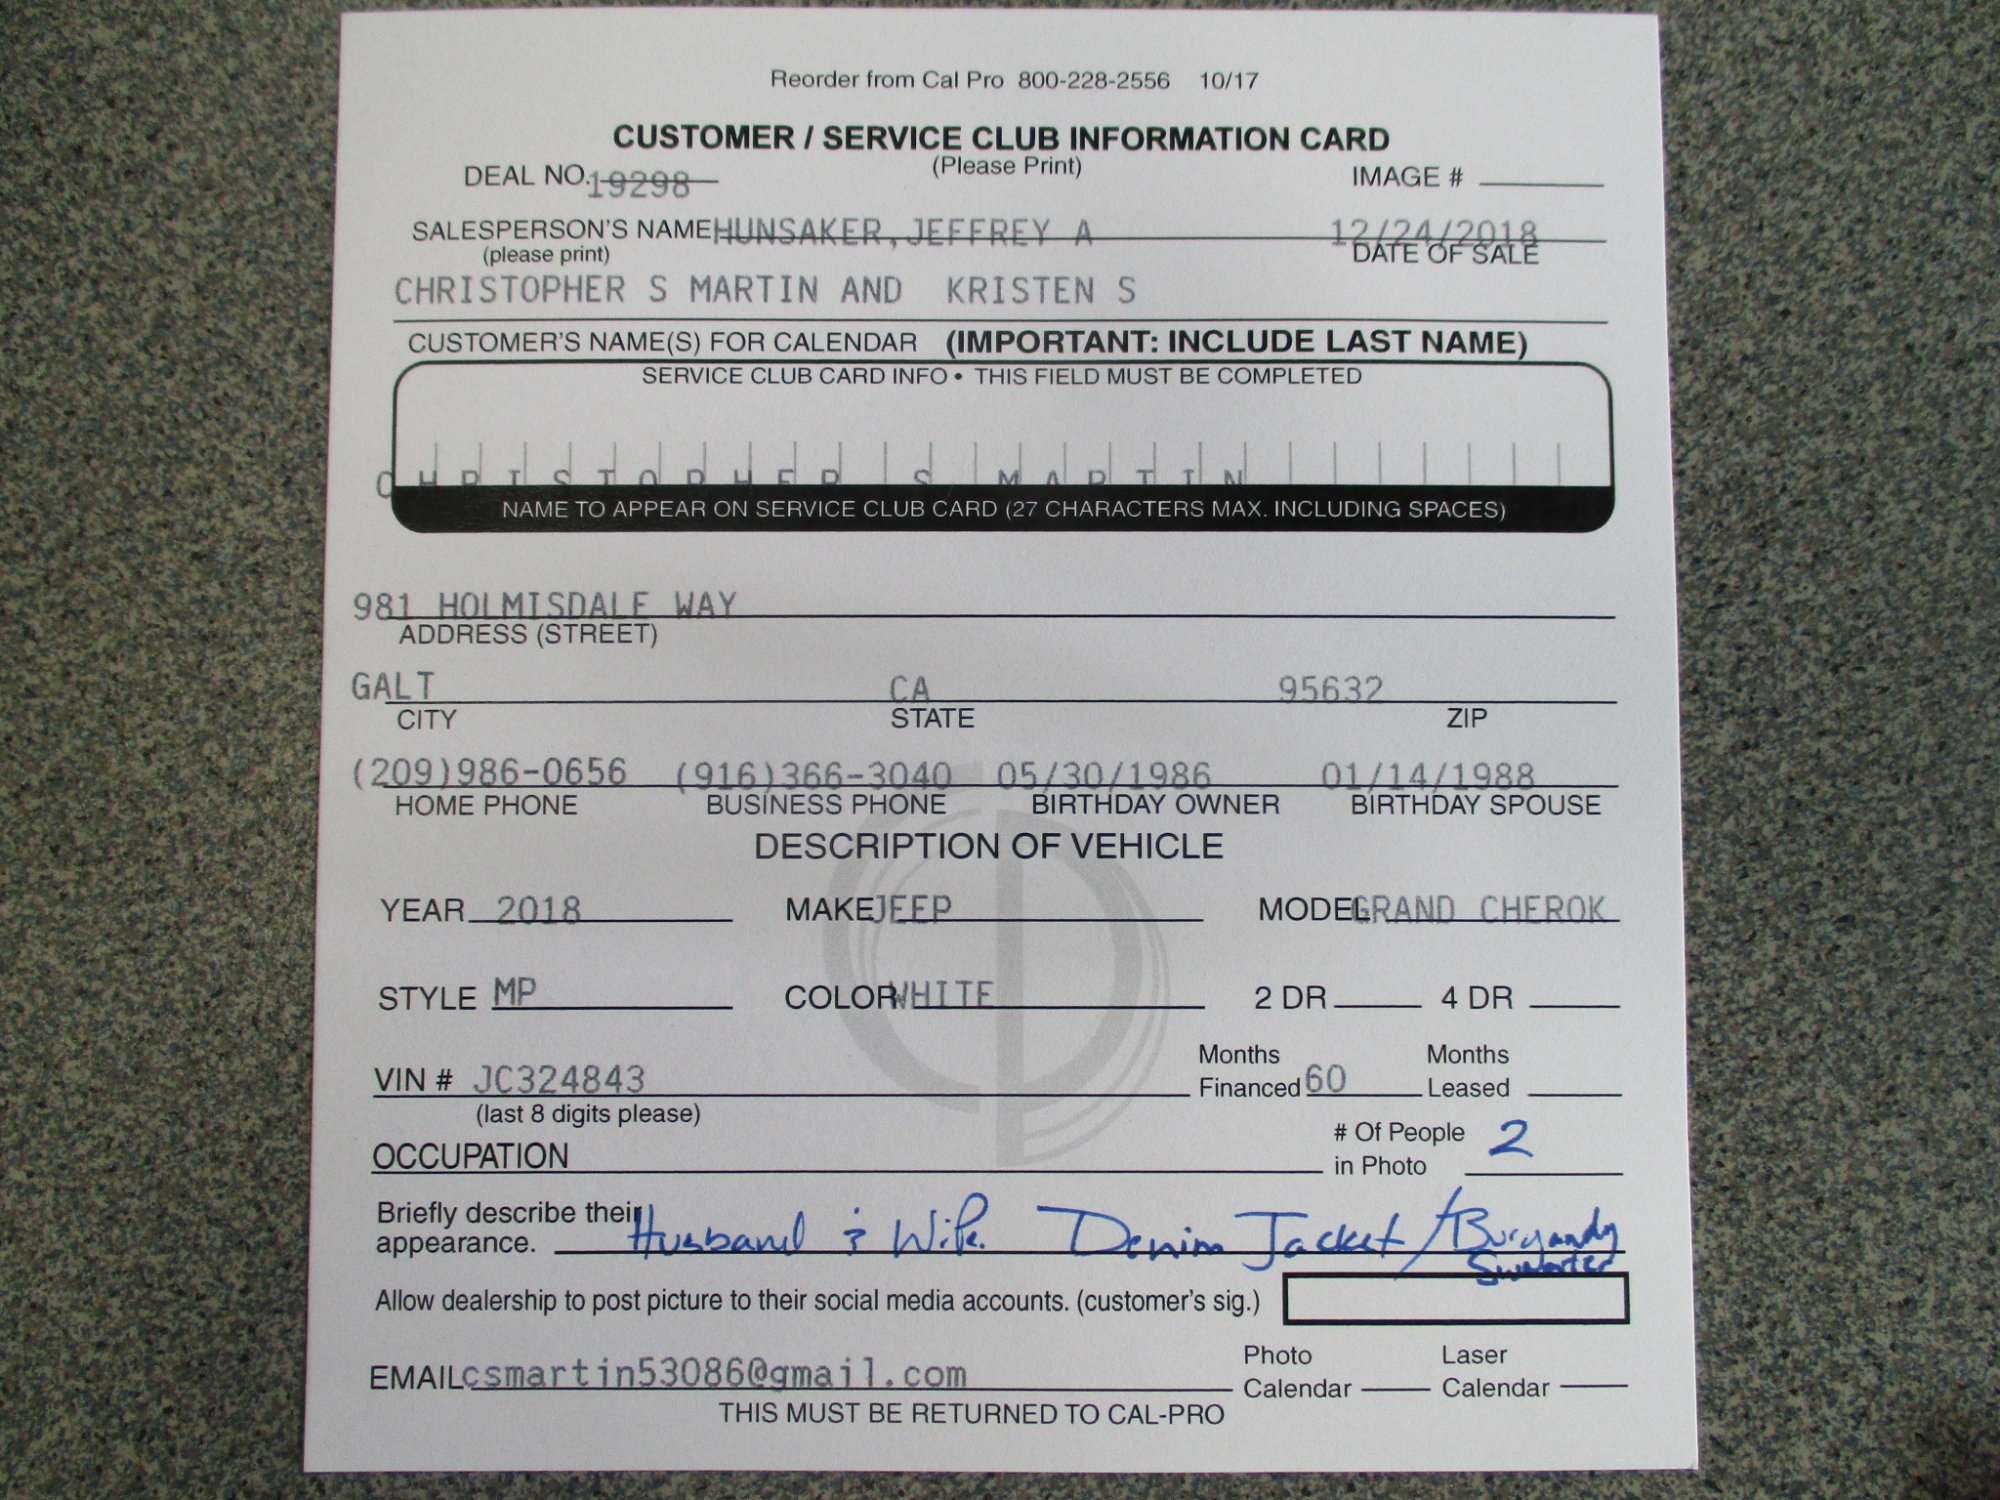 Reorder from Cal Pro 800-228-2556 10/17
CUSTOMER / SERVICE CLUB INFORMATION CARD
(Please Print)
DEAL NO. 19298 IMAGE #
SALESPERSON'S NAME HUNSAKER, JEFFREY A 12/24/2018
(please print) DATE OF SALE
CHRISTOPHER S MARTIN AND KRISTEN S
CUSTOMER'S NAME(S) FOR CALENDAR (IMPORTANT: INCLUDE LAST NAME)
SERVICE CLUB CARD INFO • THIS FIELD MUST BE COMPLETED
CHRISTOPHER S MARTIN
NAME TO APPEAR ON SERVICE CLUB CARD (27 CHARACTERS MAX. INCLUDING SPACES)
981 HOLMISDALE WAY
ADDRESS (STREET)
GALT CA 95632
CITY STATE ZIP
(209)986-0656 (916)366-3040 05/30/1986 01/14/1988
HOME PHONE BUSINESS PHONE BIRTHDAY OWNER BIRTHDAY SPOUSE
DESCRIPTION OF VEHICLE
YEAR 2018 MAKE JEEP MODEL GRAND CHEROK
STYLE MP COLOR WHITE 2 DR 4 DR
Months Months
VIN # JC324843 Financed 60 Leased
(last 8 digits please)
# Of People 2
OCCUPATION in Photo
Briefly describe their
appearance. Husband & Wife. Denim Jacket / Burgandy
Sweater
Allow dealership to post picture to their social media accounts. (customer's sig.)
Photo Laser
EMAIL csmartin53086@gmail.com Calendar Calendar
THIS MUST BE RETURNED TO CAL-PRO